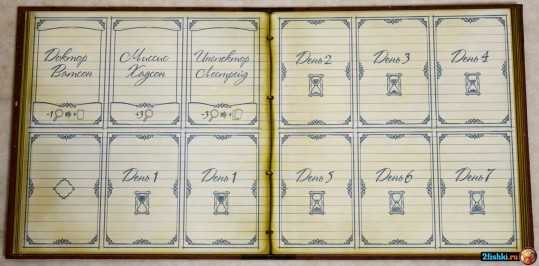 Доктор
Ватсон
Миссис
Хадсон
Инспектор
Лестрейд
-1
+
+3
-3
+
День 1
День 1
День 2
День 3
День 4
День 5
День 6
День 7
2fishki.ru